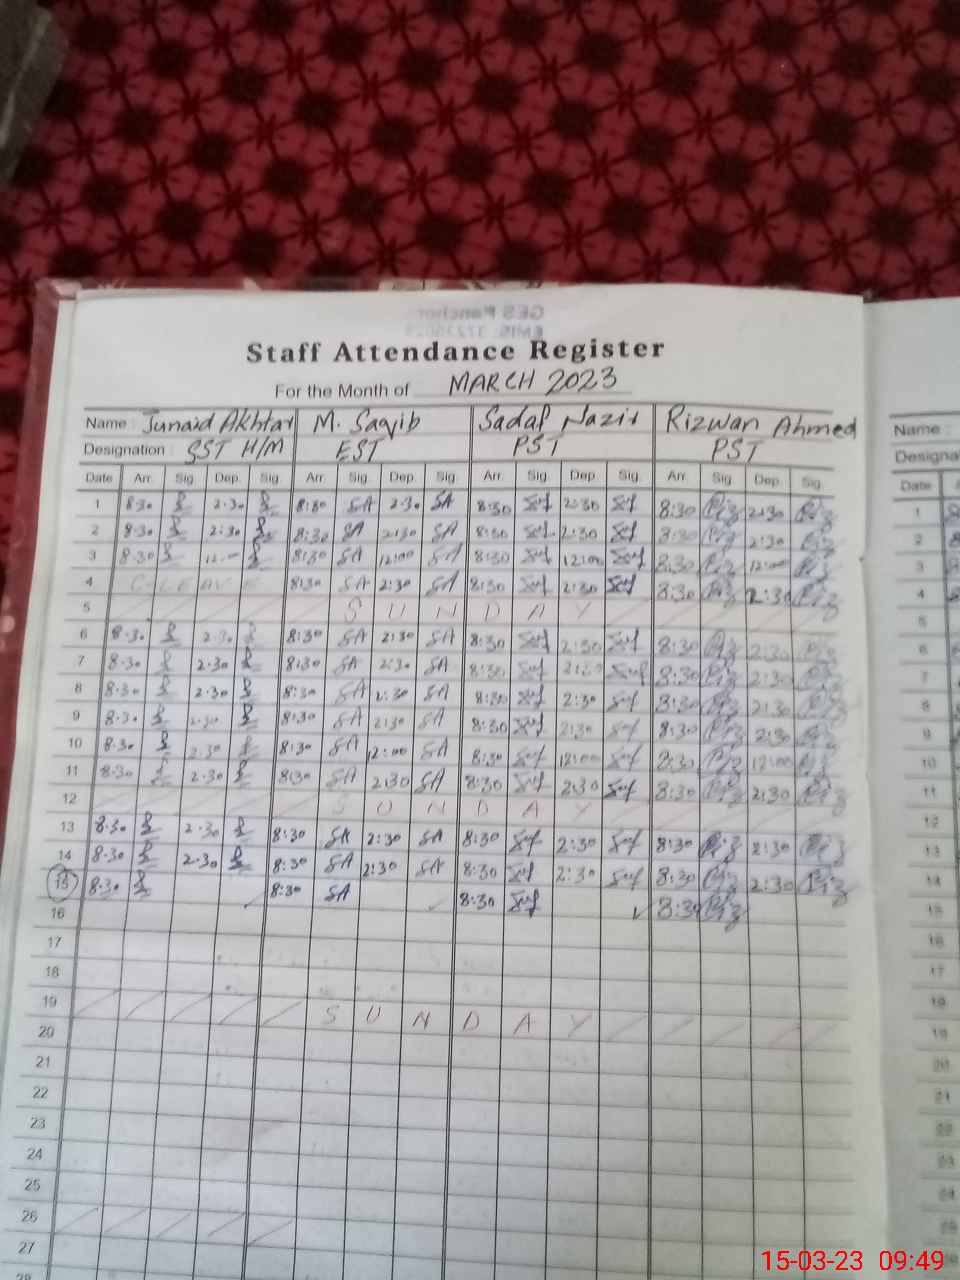 Staff Attendance Register
For the Month of MARCH 2023
Name : Junaid Akhtar M. Saqib Sadaf Nazir Rizwan Ahmed
Designation : SST H/M EST PST PST
Date Arr. Sig. Dep. Sig. Arr. Sig. Dep. Sig. Arr. Sig. Dep. Sig. Arr. Sig. Dep. Sig.
1 8:30 2:30 8:30 SA 2:30 SA 8:30 2:30 8:30 Riz 2:30 Riz
2 8:30 2:30 8:30 SA 2:30 SA 8:30 2:30 8:30 Riz 2:30 Riz
3 8:30 12:00 8:30 SA 12:00 SA 8:30 12:00 8:30 Riz 12:00 Riz
4 C-LEAVE 8:30 SA 2:30 SA 8:30 2:30 8:30 Riz 2:30 Riz
5 SUNDAY
6 8:30 2:30 8:30 SA 2:30 SA 8:30 2:30 8:30 Riz 2:30 Riz
7 8:30 2:30 8:30 SA 2:30 SA 8:30 2:30 8:30 Riz 2:30 Riz
8 8:30 2:30 8:30 SA 2:30 SA 8:30 2:30 8:30 Riz 2:30 Riz
9 8:30 2:30 8:30 SA 2:30 SA 8:30 2:30 8:30 Riz 2:30 Riz
10 8:30 2:30 8:30 SA 12:00 SA 8:30 12:00 8:30 Riz 12:00 Riz
11 8:30 2:30 8:30 SA 2:30 SA 8:30 2:30 8:30 Riz 2:30 Riz
12 SUNDAY
13 8:30 2:30 8:30 SA 2:30 SA 8:30 2:30 8:30 Riz 2:30 Riz
14 8:30 2:30 8:30 SA 2:30 SA 8:30 2:30 8:30 Riz 2:30 Riz
15 8:30 8:30 SA 8:30 8:30 Riz
16
17
18
19 SUNDAY
20
21
22
23
24
25
26
27
28
Name :
Date
1
2
3
4
5
6
7
8
9
10
11
12
13
14
15
16
17
18
19
20
21
22
23
24
25
26
15-03-23 09:49